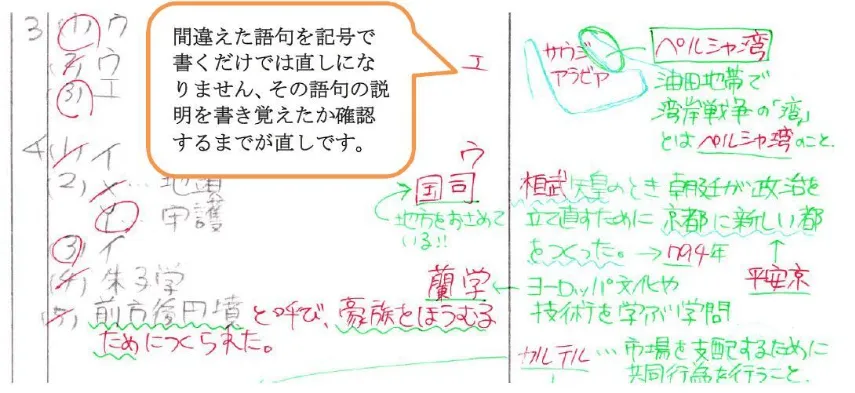 3 (1) ウ
(2) ウ
(3) エ
エ
間違えた語句を記号で
書くだけでは直しにな
りません、その語句の説
明を書き覚えたか確認
するまでが直しです。
4 (1) イ
ウ
(2) 地頭
と 守護
国司
地方をおさめて
いる!!
(3) イ
(4) 朱子学
蘭学
(5) 前方後円墳と呼び、豪族をほうむる
ためにつくられた。
サウジ
アラビア
ペルシャ湾
油田地帯で
湾岸戦争の「湾」
とはペルシャ湾のこと.
桓武天皇のとき朝廷が政治を
立て直すために京都に新しい都
をつくった。→794年
平安京
ヨーロッパ文化や
技術を学ぶ学問
カルテル…市場を支配するために
共同行為を行うこと.